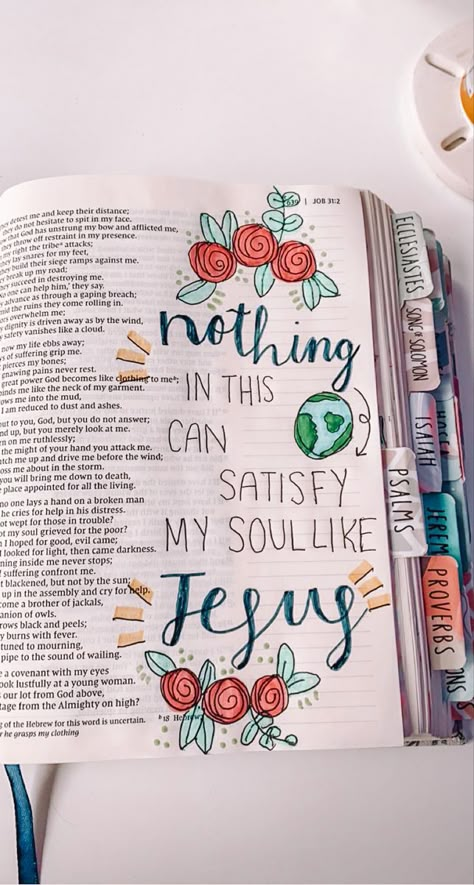 639 | JOB 31:2
They detest me and keep their distance;
they do not hesitate to spit in my face.
Now that God has unstrung my bow and afflicted me,
they throw off restraint in my presence.
my right the tribe attacks;
they lay snares for my feet,
they build their siege ramps against me.
They break up my road;
they succeed in destroying me.
No one can help him,' they say.
They advance as through a gaping breach;
amid the ruins they come rolling in.
overwhelm me;
my dignity is driven away as by the wind,
my safety vanishes like a cloud.
now my life ebbs away;
days of suffering grip me.
pierces my bones;
gnawing pains never rest.
great power God becomes like clothing to me;
binds me like the neck of my garment.
throws me into the mud,
I am reduced to dust and ashes.
out to you, God, but you do not answer;
stand up, but you merely look at me.
turn on me ruthlessly;
the might of your hand you attack me.
snatch me up and drive me before the wind;
toss me about in the storm.
you will bring me down to death,
the place appointed for all the living.
no one lays a hand on a broken man
he cries for help in his distress.
not wept for those in trouble?
not my soul grieved for the poor?
I hoped for good, evil came;
I looked for light, then came darkness.
churning inside me never stops;
suffering confront me.
blackened, but not by the sun;
up in the assembly and cry for help.
become a brother of jackals,
companion of owls.
grows black and peels;
body burns with fever.
tuned to mourning,
pipe to the sound of wailing.
a covenant with my eyes
look lustfully at a young woman.
our lot from God above,
heritage from the Almighty on high?
of the Hebrew for this word is uncertain.
b 18 Hebrew
he grasps my clothing
nothing
IN THIS
CAN
SATISFY
MY SOUL LIKE
Jesus
ECCLESIASTES
SONG of SOLOMON
ISAIAH
PSALMS
JEREM
PROVERBS